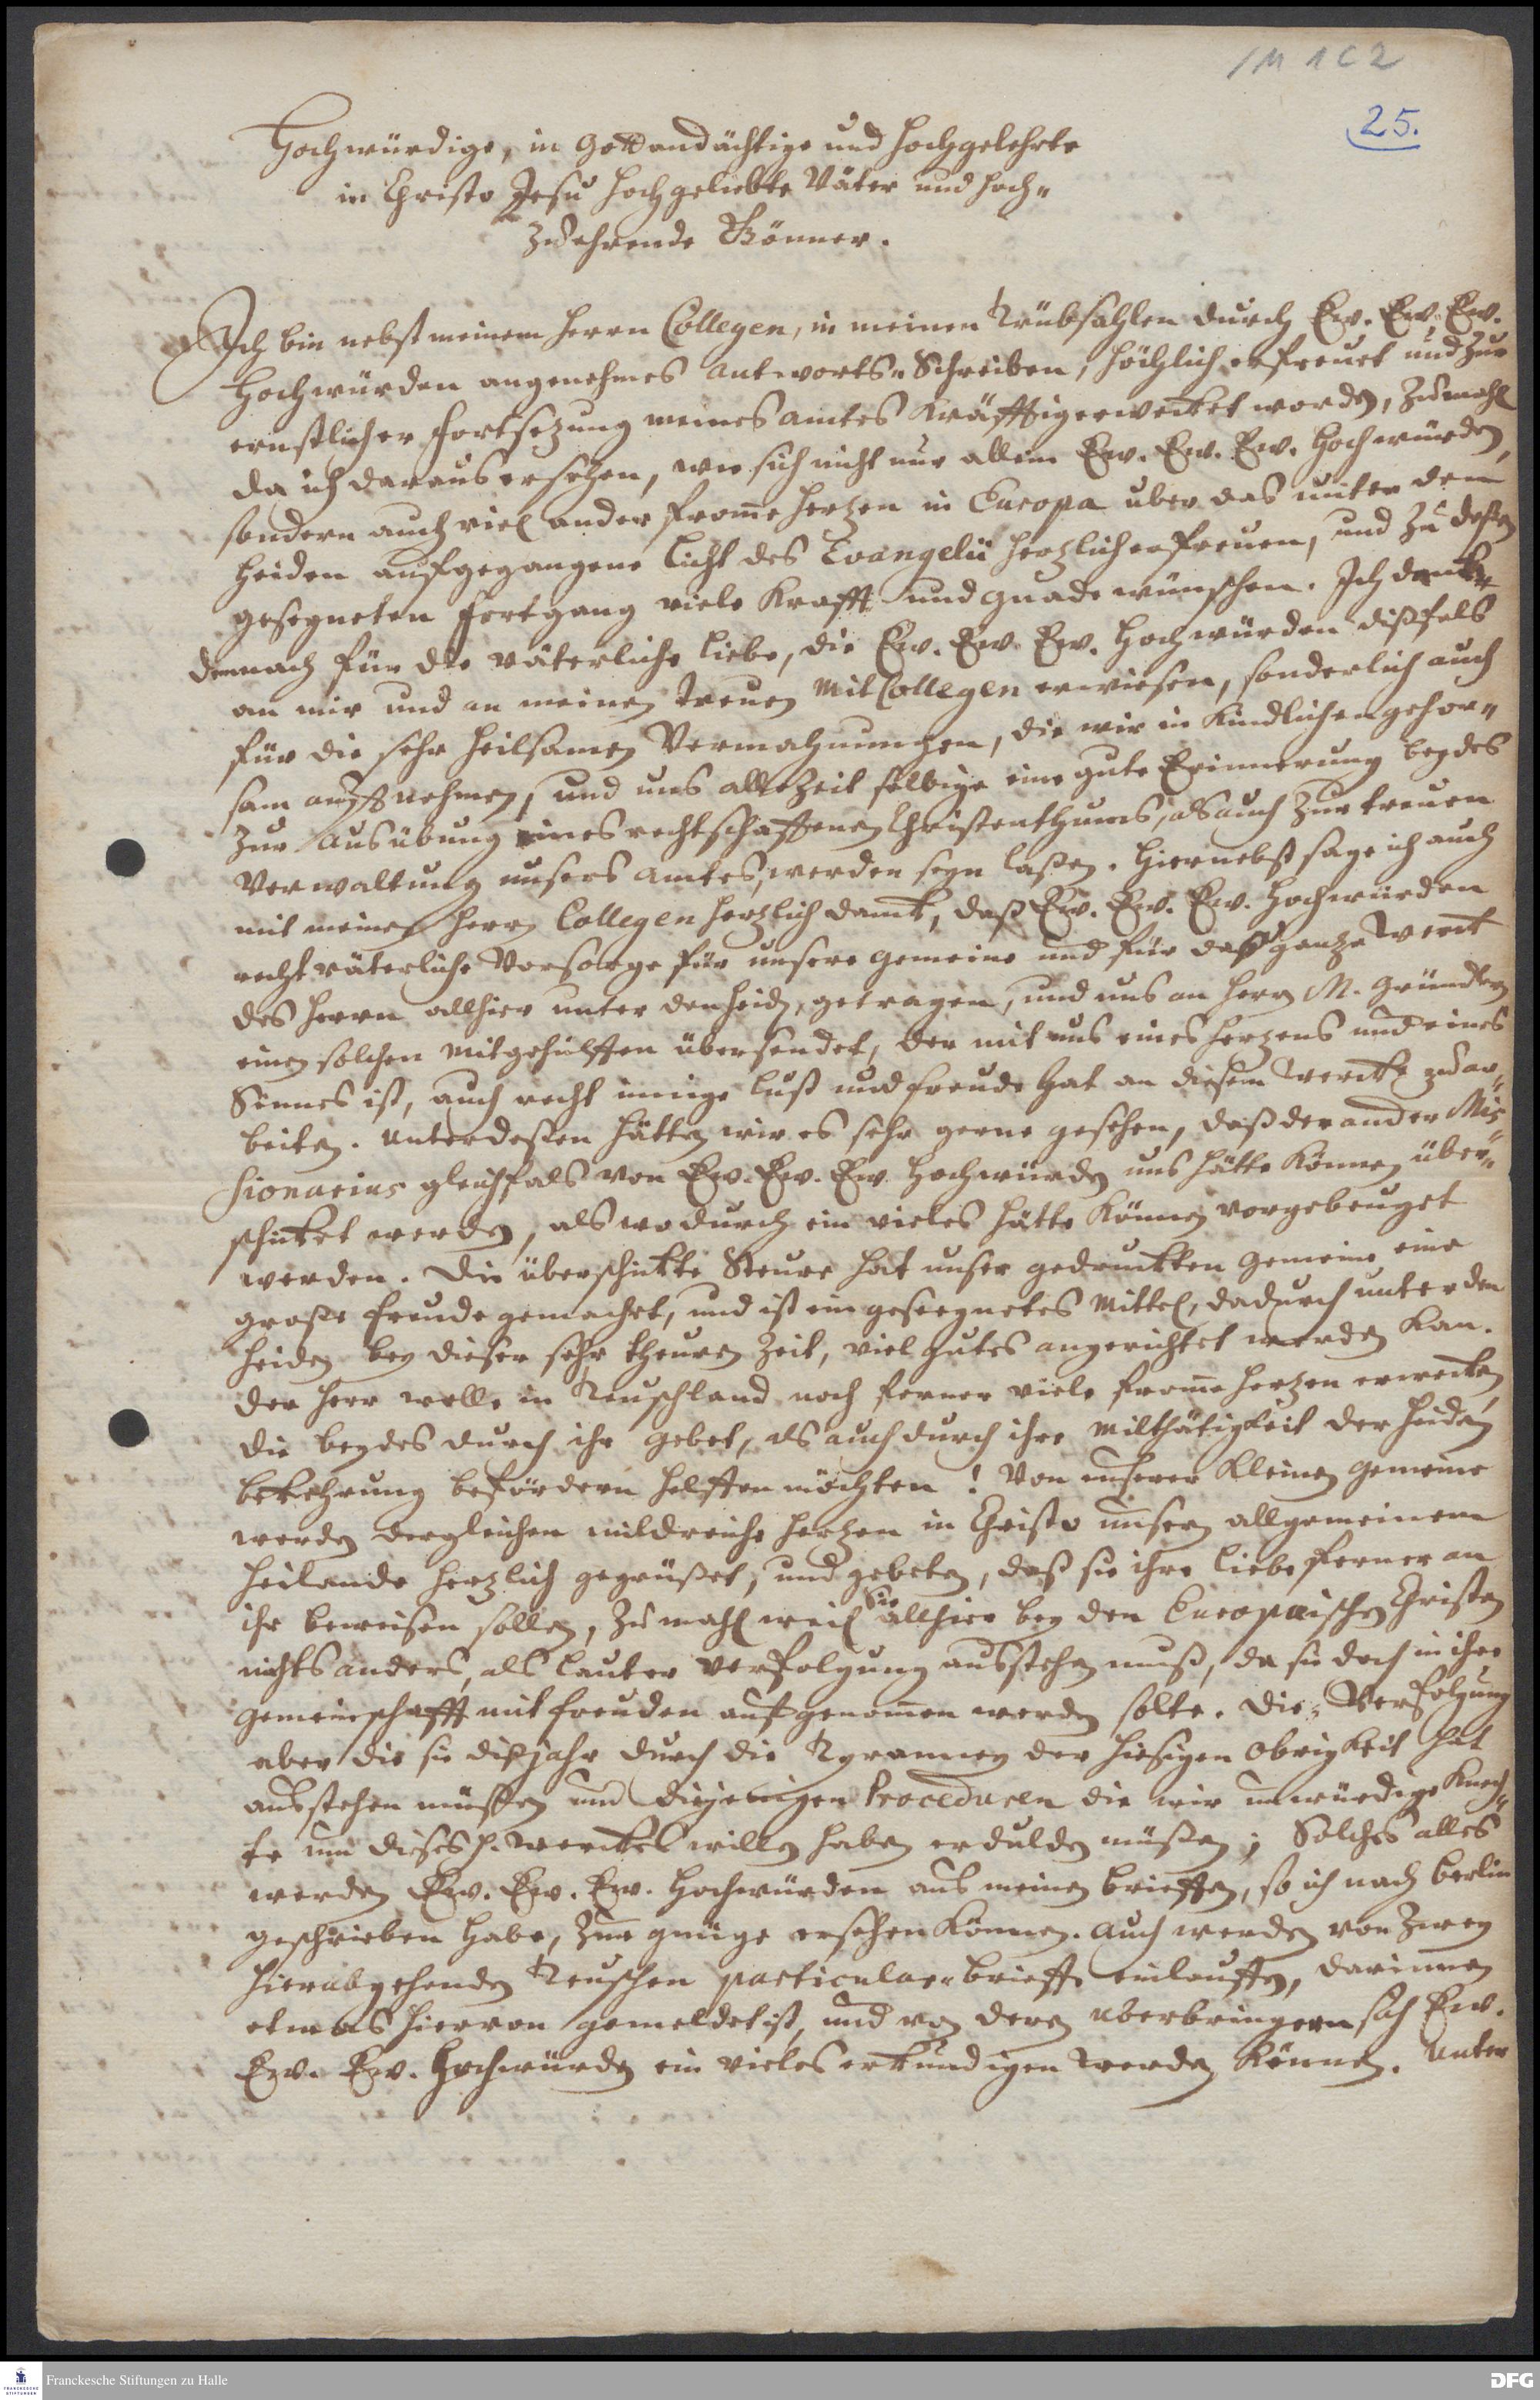 1M 1C 2
25.
Hochwürdige, in Gott andächtige und Hochgelehrte
in Christo Jesu Hochgeliebte Väter und Hoch-
zuehrende Gönner.
Ich bin nebst meinem Herrn Collegen, in meinen Trübsahlen durch Ew. Ew. Ew.
Hochwürden angenehmes Antworts-Schreiben, höchlich erfreuet und zur
ernstlicher Fortsezung meines Amtes kräfftig erwecket worden, zumahl
da ich daraus ersehen, wie sich nicht nur allein Ew. Ew. Ew. Hochwürden,
sondern auch viel ander fromme Hertzen in Europa uber das unter den
Heiden aufgegangene Licht des Evangelii hertzlich erfreuen, und zu deßen
gesegneten Fortgang viele Krafft und Gnade wünschen. Ich dancke
demnach für die väterliche Liebe, die Ew. Ew. Ew. Hochwürden dißfals
an mir und an meinen treuen MitCollegen erwiesen, sonderlich auch
für die sehr heilsamen Vermahnungen, die wir in kindlichen gehor-
sam auffnehmen, und uns allezeit selbige eine gute Erinnerung beydes
zur Ausübung eines rechtschaffenen Christenthums, als auch zur treuen
Verwaltung unsers Amtes, werden seyn laßen. Hiernebst sage ich auch
mit meinen Herrn Collegen hertzlich danck, daß Ew. Ew. Ew. Hochwürden
recht väterliche Vorsorge für unsere Gemeine und für daß gantze Werck
des Herrn allhier unter den Heiden, getragen, und uns an Herrn M. Gründlern
einen solchen Mitgehülffen übersendet, der mit uns eines Hertzens und eines
Sinnes ist, auch recht innige Lust und Freude hat an diesem Wercke zu ar-
beiten. Unterdeßen hätten wir es sehr gerne gesehen, daß der ander Mis-
sionarius gleichfals von Ew. Ew. Ew. Hochwürden uns hätte können über-
schicket werden, als wodurch ein vieles hätte können vorgebeuget
werden. Die überschickte Steure hat unser gedruckten Gemeine eine
große Freude gemachet, und ist ein geseegnetes Mittel, dadurch unter den
Heiden bey dieser sehr theuren Zeit, viel gutes angerichtet werden kan.
Der Herr wolle in Teuschland noch ferner viele fromme Hertzen erwecken,
die beydes durch ihr Gebet, als auch durch ihre Milthätigkeit der Heiden
bekehrung befördern helffen möchten! Von unserer kleinen Gemeine
werden dergleichen mildreiche Hertzen in Christo unsern allgemeinem
Heilande hertzlich gegrüßet, und gebeten, daß sie ihre Liebe ferner an
ihr beweisen sollen, zumahl weil Sie allhier bey den Europaischen Christen
nichts anders, als lauter Verfolgung ausstehen muß, da sie doch in ihre
Gemeinschafft mit Freuden aufgenommen werden solte. Die Verfolgung
aber die sie diß Jahr durch die Tyranney der hiesigen Obrigkeit hat
ausstehen müßen und diejenigen Proceduren die wir unwürdige Knech-
te um dieses H. Werckes willen haben erdulden müßen; Solches alles
werden Ew. Ew. Ew. Hochwürden aus meinen Brieffen, so ich nach Berlin
geschrieben habe, zur gnüge ersehen können. Auch werden von zwey
hierabgehenden Teuschen particular-brieffe einlauffen, darinnen
etwas hiervon gemeldet ist, und von deren Uberbringern sich Ew.
Ew. Ew. Hochwürden ein vieles erkundigen werden können. Unter
Franckesche Stiftungen zu Halle
FRANCKESCHE STIFTUNGEN
DFG